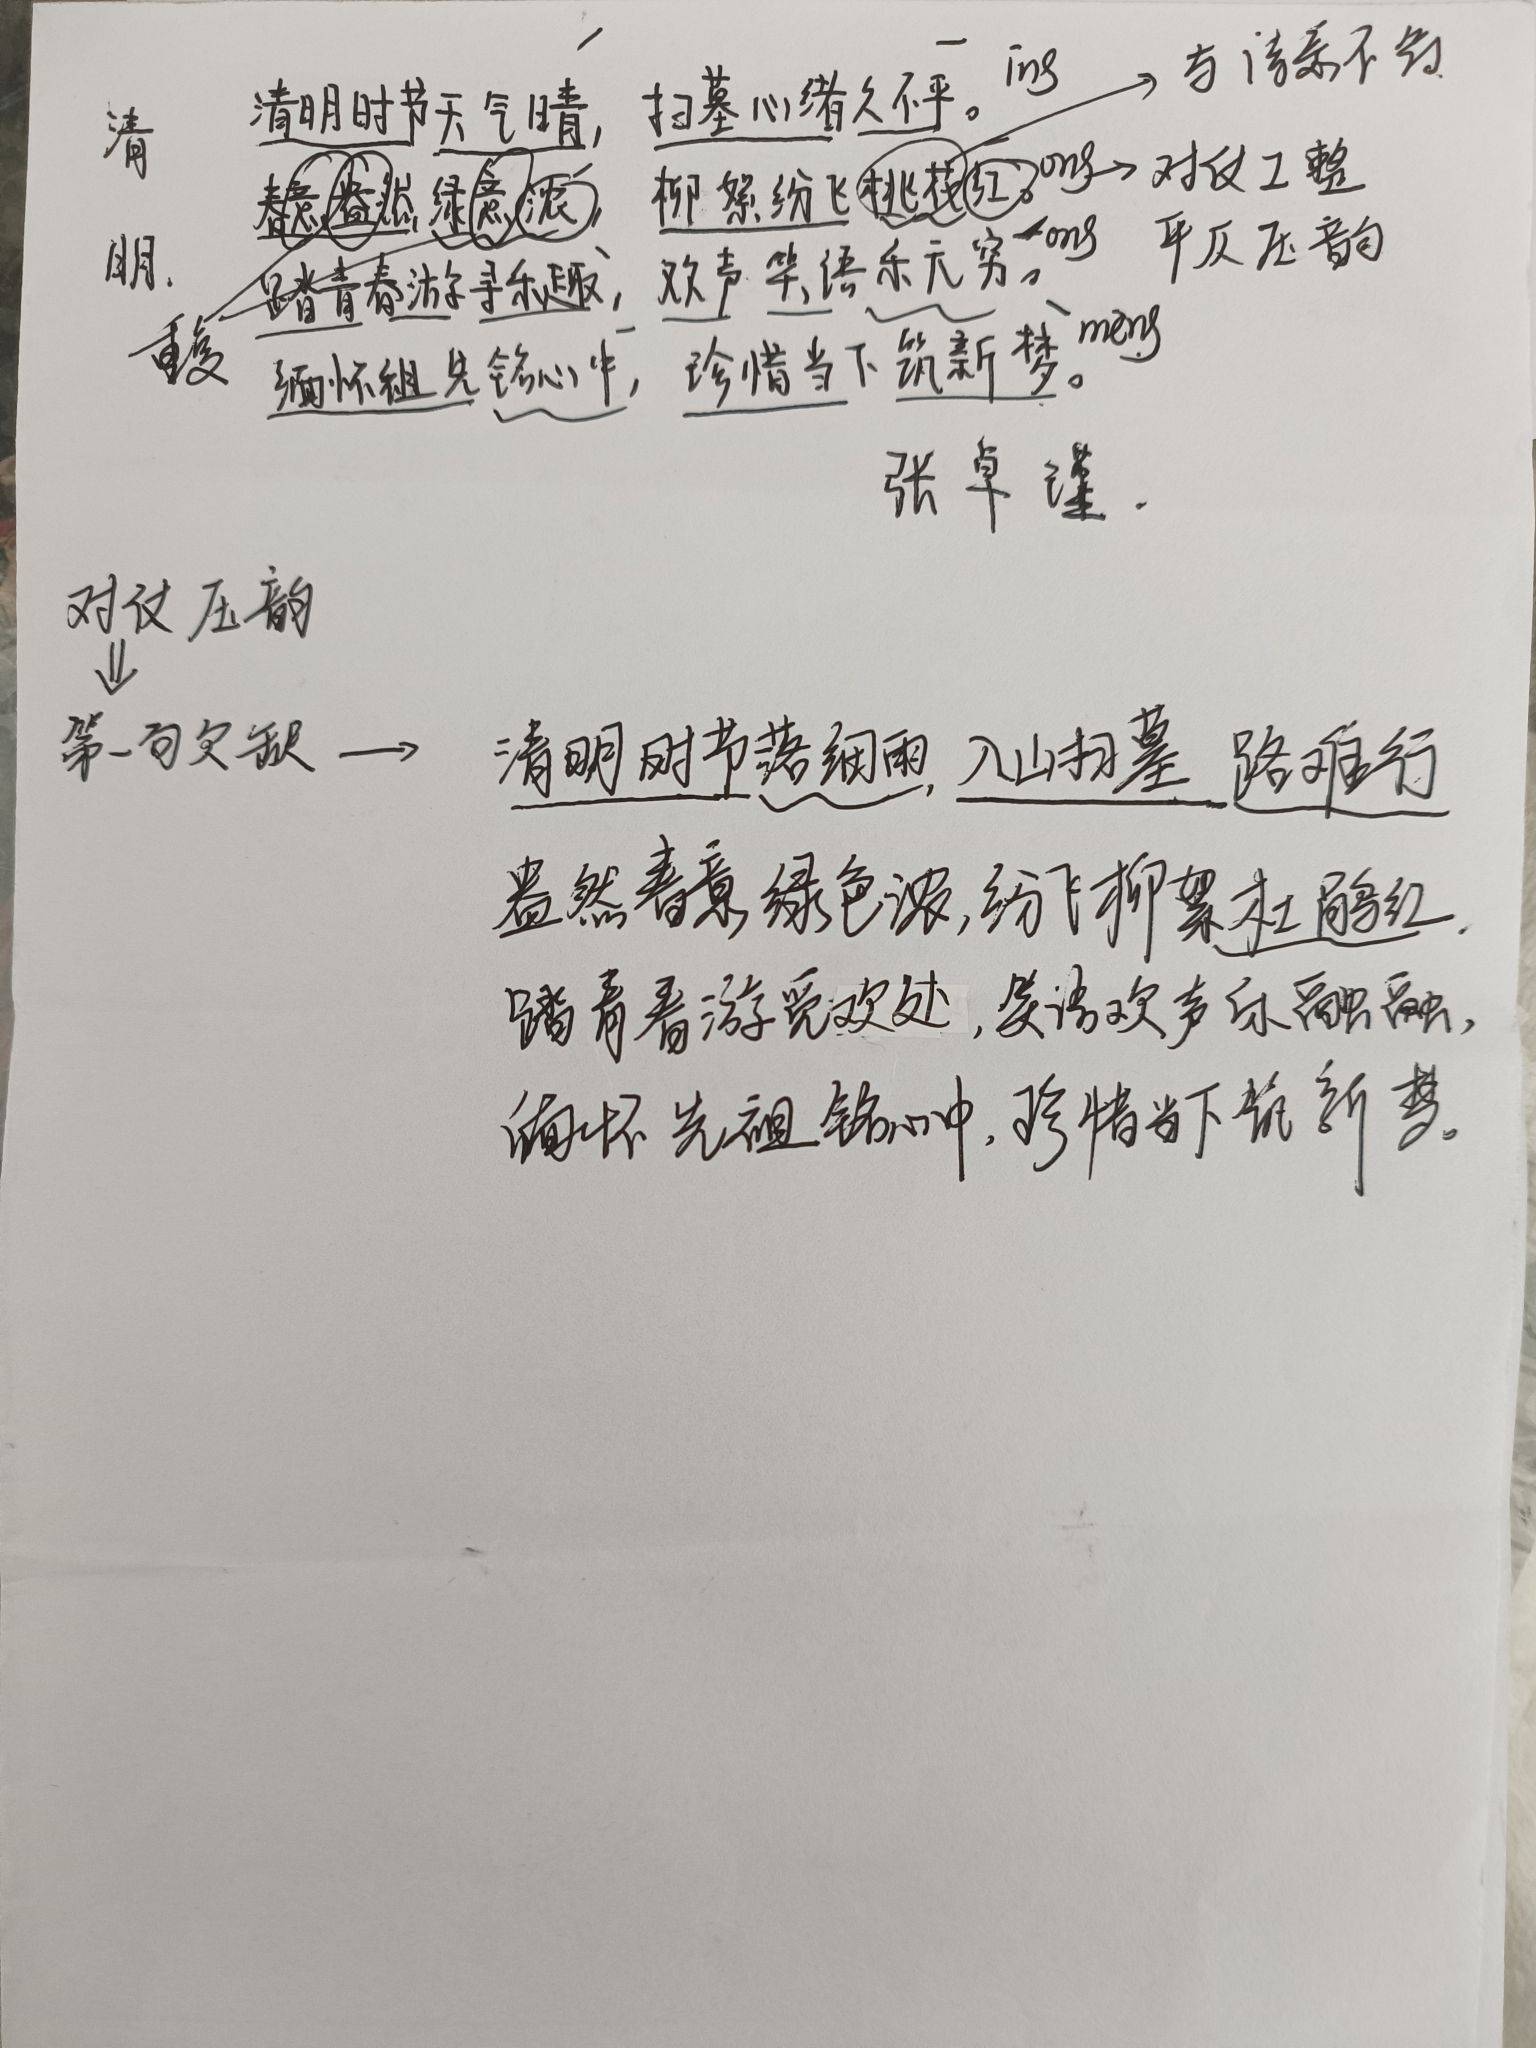 清明
清明时节天气晴，扫墓心绪久不平。ing → 与诗系不匀
春意盎然绿意浓，柳絮纷飞桃花红。ong → 对仗工整
踏青春游寻乐趣，欢声笑语乐无穷。ong 平仄压韵
重复
缅怀祖先铭心中，珍惜当下筑新梦。meng
张卓谨.
对仗压韵
⇓
第一句欠缺 → 清明时节落细雨，入山扫墓路难行
盎然春意绿色浓，纷飞柳絮杜鹃红.
踏青春游觅欢处，笑语欢声乐融融，
缅怀先祖铭心中，珍惜当下筑新梦。